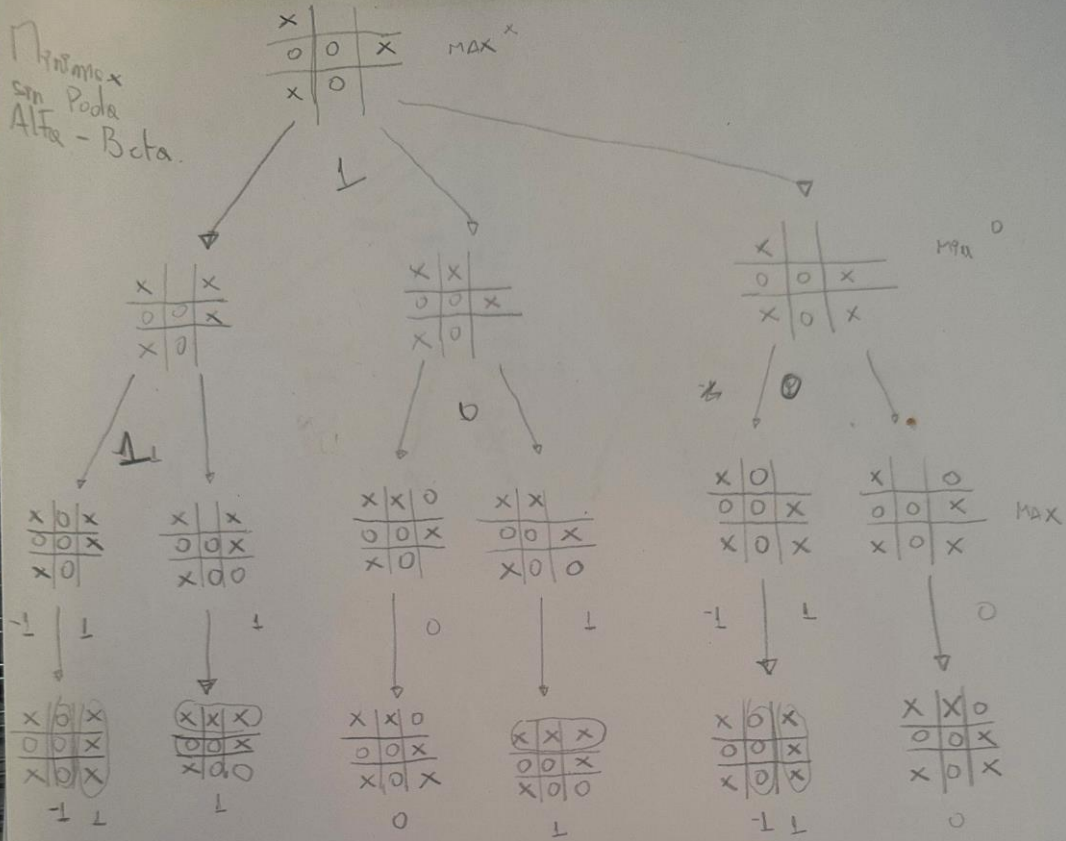 Minimax
sin Poda
Alfa - Beta.
X
O O X
X O
MAX X
1
X X
O O X
X O
X X
O O X
X O
X
O O X
X O X
Min O
1
0
0
X O X
O O X
X O
X X
O O X
X O O
X X O
O O X
X O
X X
O O X
X O O
X O
O O X
X O X
X O
O O X
X O X
MAX
-1 1
1
0
1
-1 1
0
X O X
O O X
X O X
X X X
O O X
X O O
X X O
O O X
X O X
X X X
O O X
X O O
X O X
O O X
X O X
X X O
O O X
X O X
-1 1
1
0
1
-1 1
0